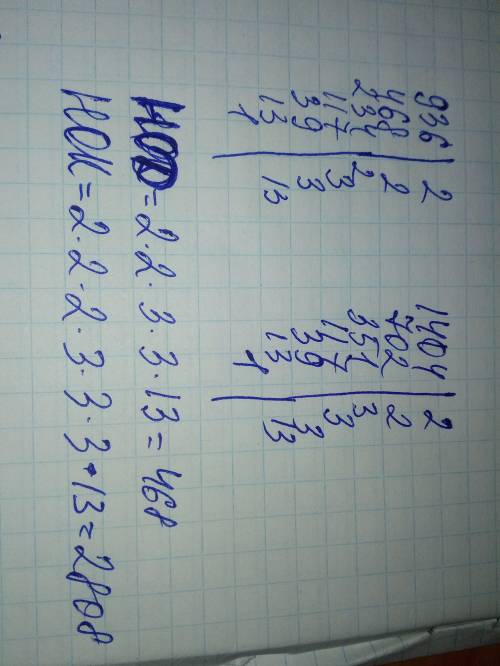 936 | 2
468 | 2
234 | 2
117 | 3
39 | 3
13 | 13
1
1404 | 2
702 | 2
351 | 3
117 | 3
39 | 3
13 | 13
1
НОД = 2·2·3·3·13 = 468
НОК = 2·2·2·3·3·3·13 = 2808